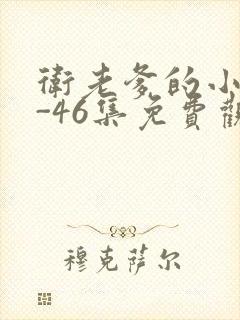 衛老爹的小
-46集免費觀
穆克萨尔